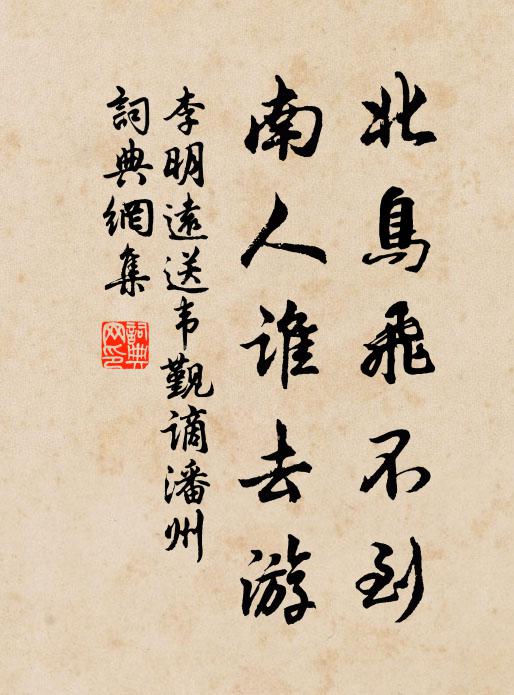 北鳥飛不到
南人誰去游
李明遠送韦觐謫潘州
詞典網集
詞典網印